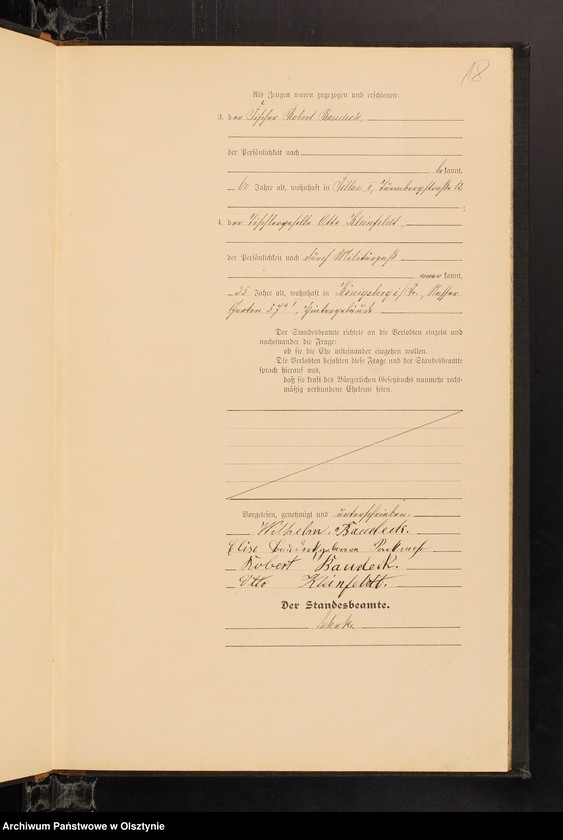 18
Als Zeugen waren zugezogen und erschienen:
3. der Fischer Robert Baudeck,
der Persönlichkeit nach
bekannt,
60 Jahre alt, wohnhaft in Pillau I, Turmbergstraße 12
4. der Tischlergeselle Otto Kleinfeldt,
der Persönlichkeit nach durch Militärpaß
anerkannt,
25 Jahre alt, wohnhaft in Königsberg i/Pr., Nasser
Garten 57, Hintergebäude
Der Standesbeamte richtete an die Verlobten einzeln und
nacheinander die Frage:
ob sie die Ehe miteinander eingehen wollen.
Die Verlobten bejahten diese Frage und der Standesbeamte
sprach hierauf aus,
daß sie kraft des Bürgerlichen Gesetzbuchs nunmehr recht-
mäßig verbundene Eheleute seien.
Vorgelesen, genehmigt und unterschrieben.
Wilhelm Baudeck.
Elise Baudeck geborene
Robert Baudeck.
Otto Kleinfeldt.
Der Standesbeamte.
Archiwum Państwowe w Olsztynie